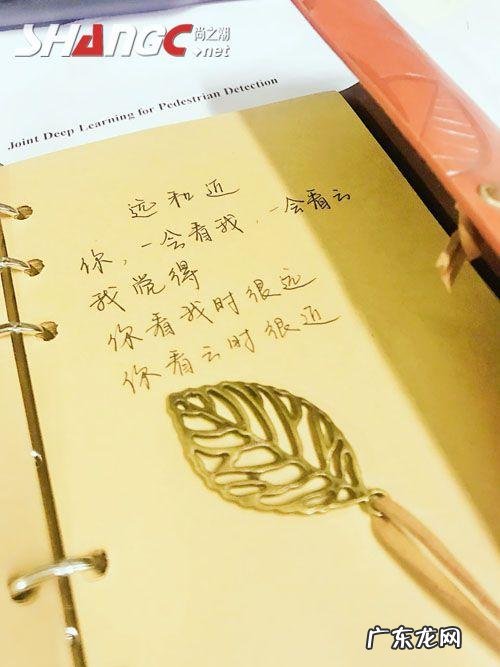 SHANGC 尚之潮
.net
Joint Deep Learning for Pedestrian Detection
远和近
你，一会看我，一会看云
我觉得
你看我时很远
你看云时很近
广东龙网